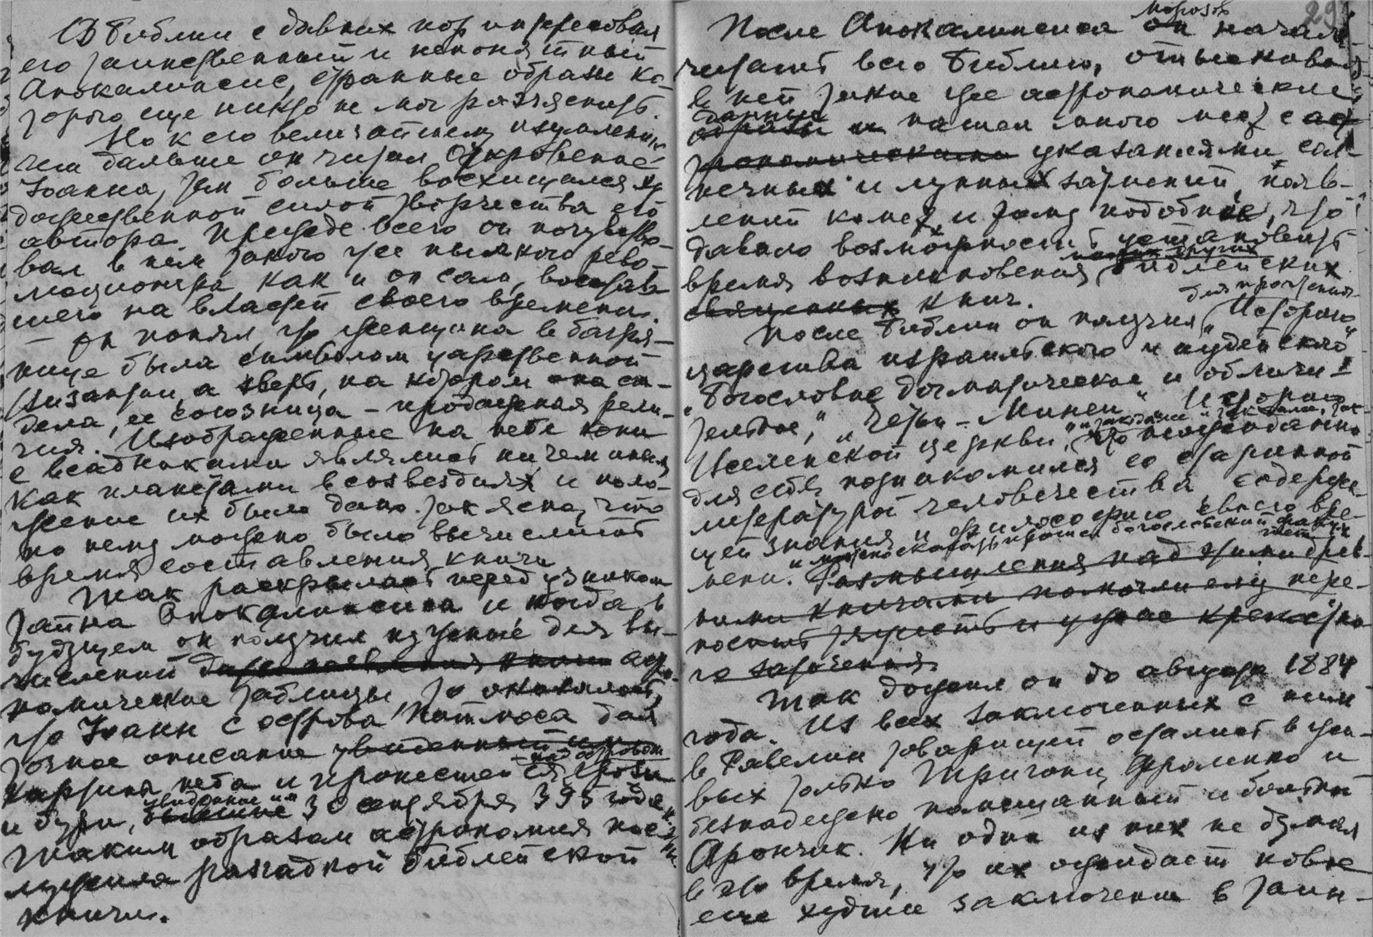 В Библии с давних пор интересовал
его таинственный и непонятный
Апокалипсис, странные образы ко-
торого еще никто не мог разъяснить.
Но к его величайшему изумлению
чем дальше он читал Откровение
Иоанна, тем больше восхищался ху-
дожественной силой творчества его
автора. Прежде всего он почувство-
вал в нем такого же пылкого рево-
люционера как и он сам, восстав-
шего на властей своего времени.
Он понял, что женщина в багря-
нице была символом царственной
Византии, а зверь, на котором она си-
дела, ее союзница – продажная рели-
гия. Изображенные на небе кони
с всадниками являлись ничем иным
как планетами в созвездиях и поло-
жение их было дано так ясно, что
по нему можно было вычислить
время составления книги
Так раскрылась перед узником
тайна Апокалипсиса и когда в
будущем он получил нужные для вы-
числений астро-
номические таблицы, то оказалось,
что Иоанн с острова Патмоса дал
точное описание увиденный им
картины неба и пронесшейся над островом грозы
и бури, виденные им 30 сентября 395 года
Таким образом астрономия пос-
лужила разгадкой библейской
книги.
После Апокалипсиса он Морозов начал
читать всю Библию, отыскивая
в ней такие же астрономические
данные и нашел много мест с аст-
рономическими указаниями сол-
нечных и лунных затмений, появ-
лений комет и тому подобное, что
давало возможность установить
время возникновения других библейских
священных книг.
После Библии он получил для прочтения „Историю
царства израильского и иудейского“
„Богословие догматическое и обличи-
тельное“, „Четьи-Минеи“, Историю
Вселенской церкви,
для себя познакомился со старинной
литературой человечества содержа-
щей знания и философию своего вре-
мени. и можно сказать прошел богословский факуль-
тет
Размышления над этими древ-
ними книгами помогли ему пере-
носить тяжесть и ужас крепостно-
го заточения
Так дожил он до августа 1884
года. Из всех заключенных с ним
в Равелин товарищей остались в жи-
вых только Тригони, Фроленко и
безнадежно помешанный и больной
Арончик. Ни один из них не думал
в это время, что их ожидает новое
еще худшее заключение в таин-